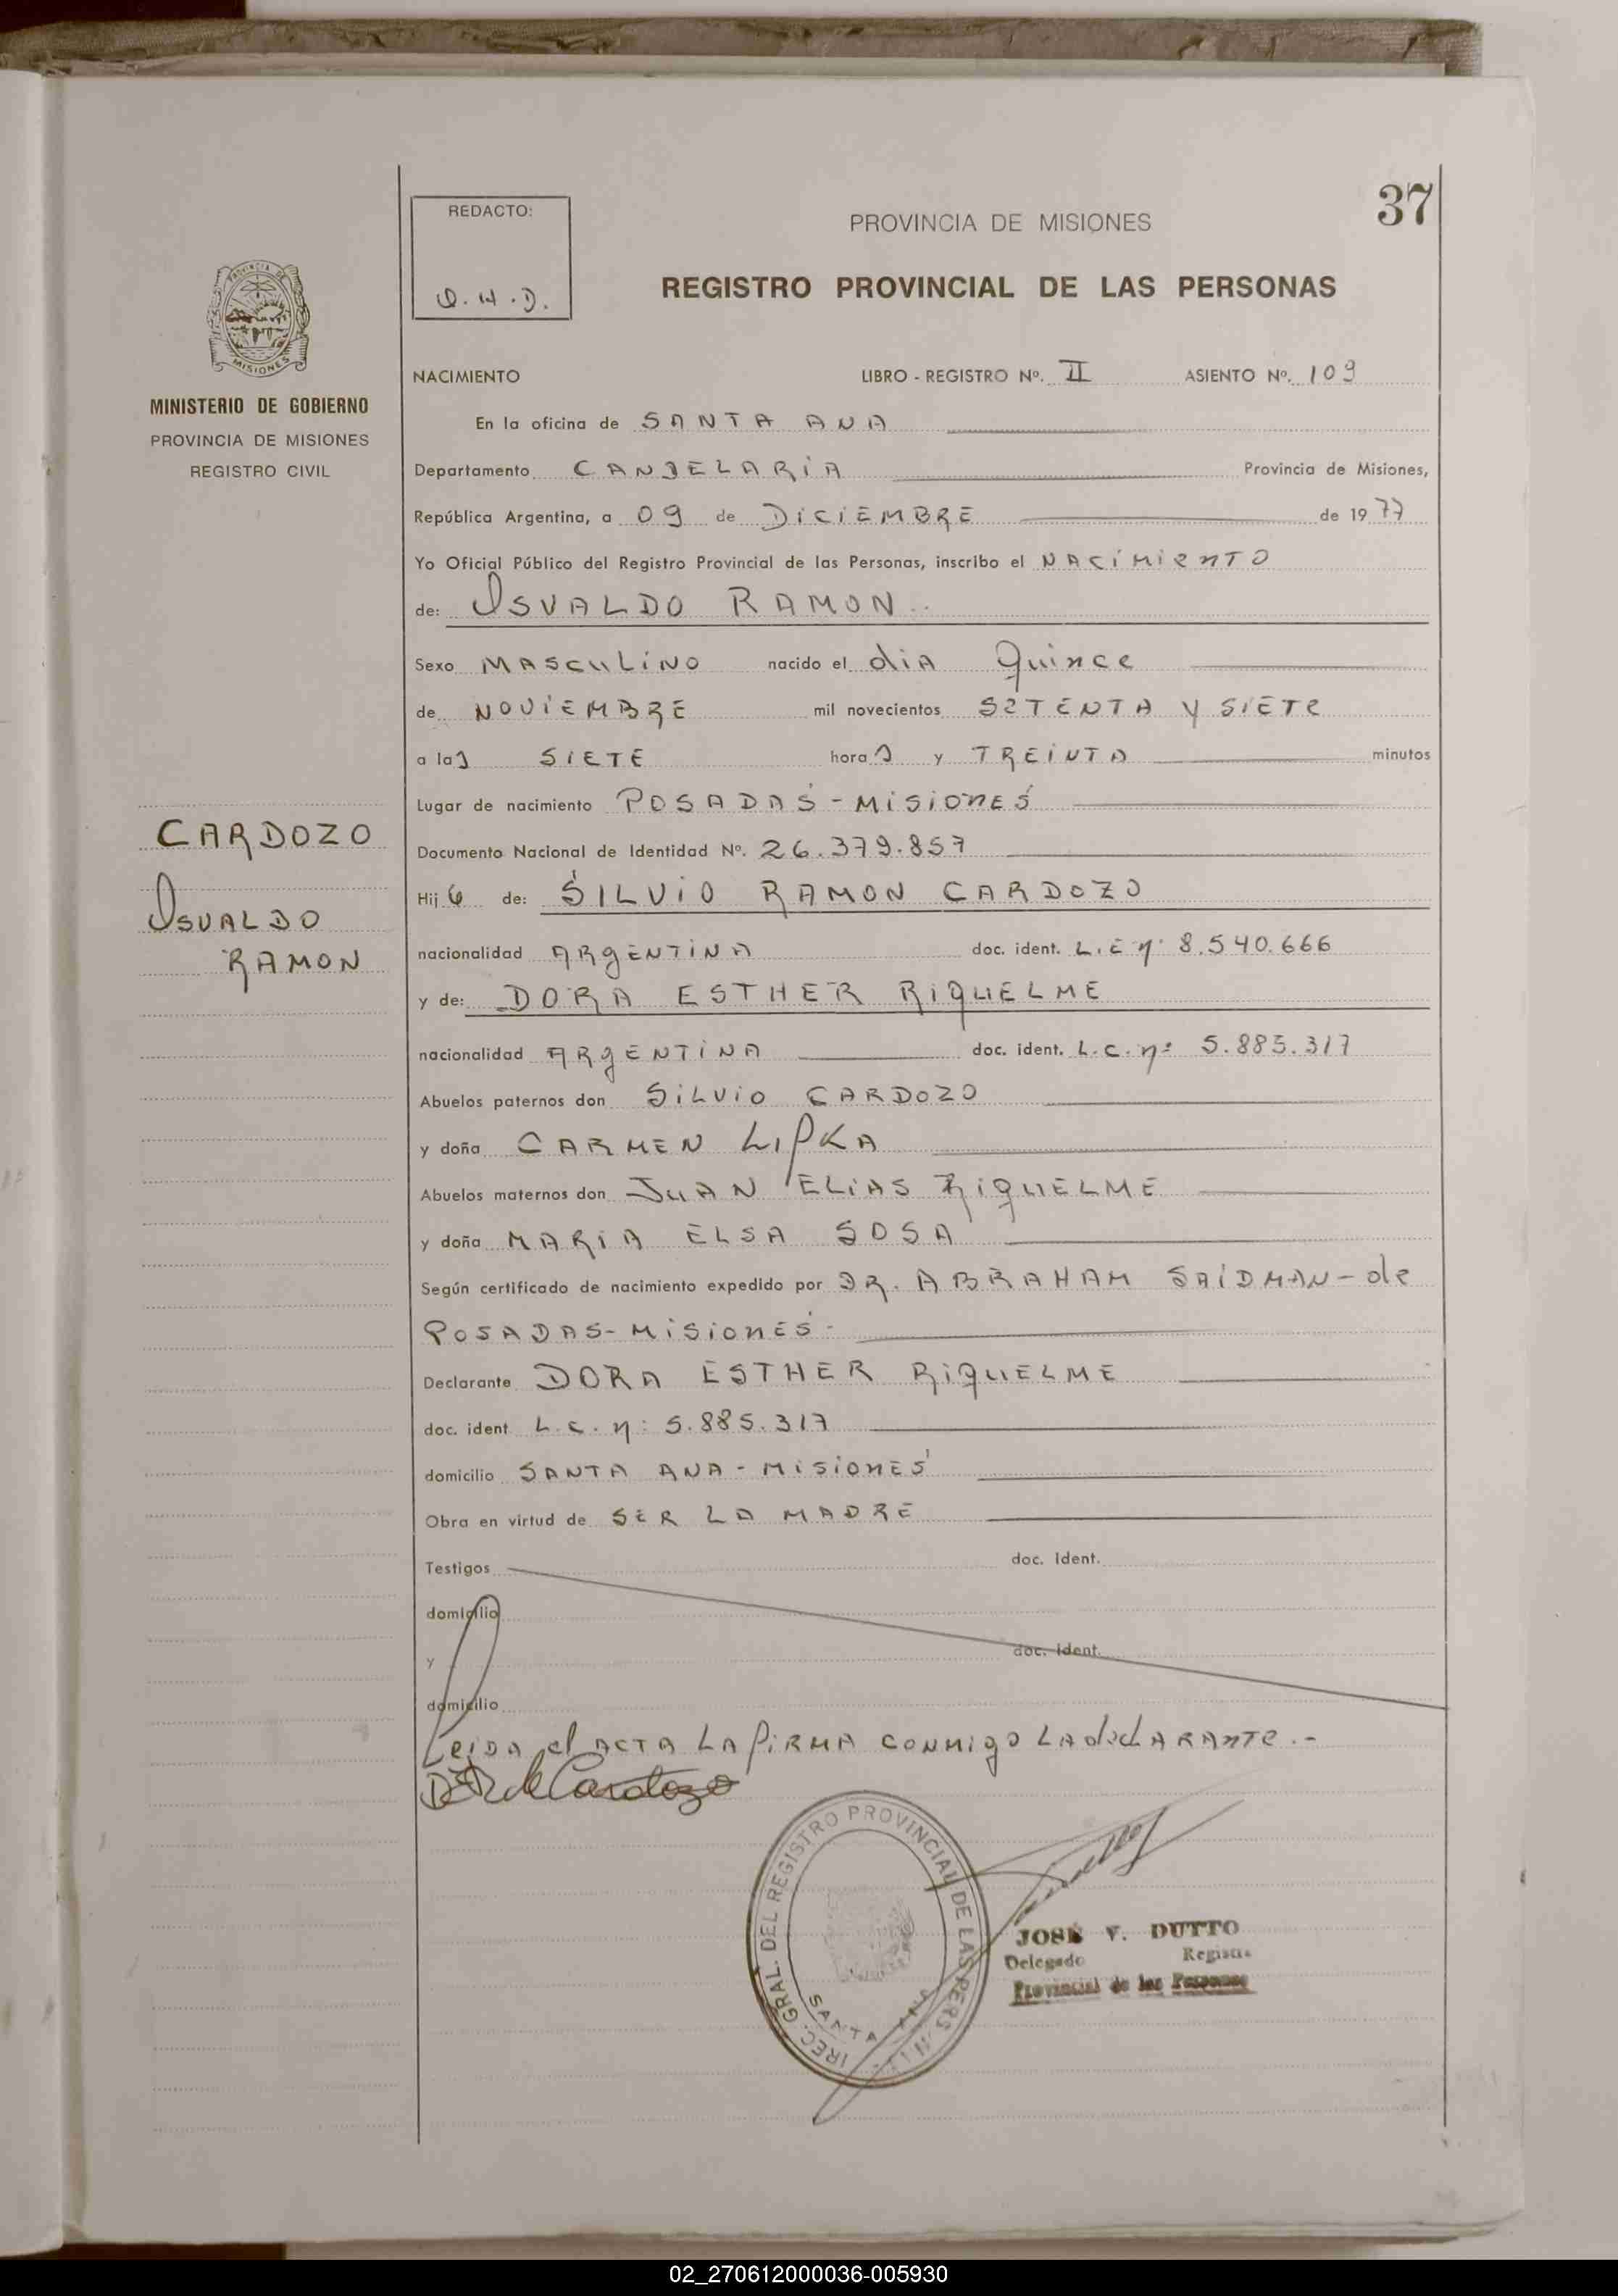 37
REDACTO:
O.H.D.
PROVINCIA DE MISIONES
REGISTRO PROVINCIAL DE LAS PERSONAS
PROVINCIA DE MISIONES
MINISTERIO DE GOBIERNO
PROVINCIA DE MISIONES
REGISTRO CIVIL
CARDOZO
OSVALDO
RAMON
NACIMIENTO LIBRO - REGISTRO Nº. II ASIENTO Nº. 109
En la oficina de SANTA ANA
Departamento CANDELARIA Provincia de Misiones,
República Argentina, a 09 de DICIEMBRE de 1977
Yo Oficial Público del Registro Provincial de las Personas, inscribo el NACIMIENTO
de: OSVALDO RAMON.
Sexo MASCULINO nacido el dIA Quince
de NOVIEMBRE mil novecientos SETENTA Y SIETE
a las SIETE horas y TREINTA minutos
Lugar de nacimiento POSADAS - MISIONES
Documento Nacional de Identidad Nº. 26.379.857
Hijo de: SILVIO RAMON CARDOZO
nacionalidad ARGENTINA doc. ident. L.E nº 8.540.666
y de: DORA ESTHER RIQUELME
nacionalidad ARGENTINA doc. ident. L.C. nº 5.885.317
Abuelos paternos don SILVIO CARDOZO
y doña CARMEN LIPKA
Abuelos maternos don JUAN ELIAS RIQUELME
y doña MARIA ELSA SOSA
Según certificado de nacimiento expedido por DR. ABRAHAM SAIDMAN - de
POSADAS - MISIONES -
Declarante DORA ESTHER RIQUELME
doc. ident L.C. nº: 5.885.317
domicilio SANTA ANA - MISIONES
Obra en virtud de SER LA MADRE
Testigos doc. ident.
domicilio
y doc. ident.
domicilio
Leida el ACTA LA firma conmigo LA declarante.-
D E R de Cardozo
DIREC. GRAL. DEL REGISTRO PROVINCIAL DE LAS PERS
SANTA ANA
JOSE V. DUTTO
Delegado Registro
Provincial de las Personas
02_270612000036-005930